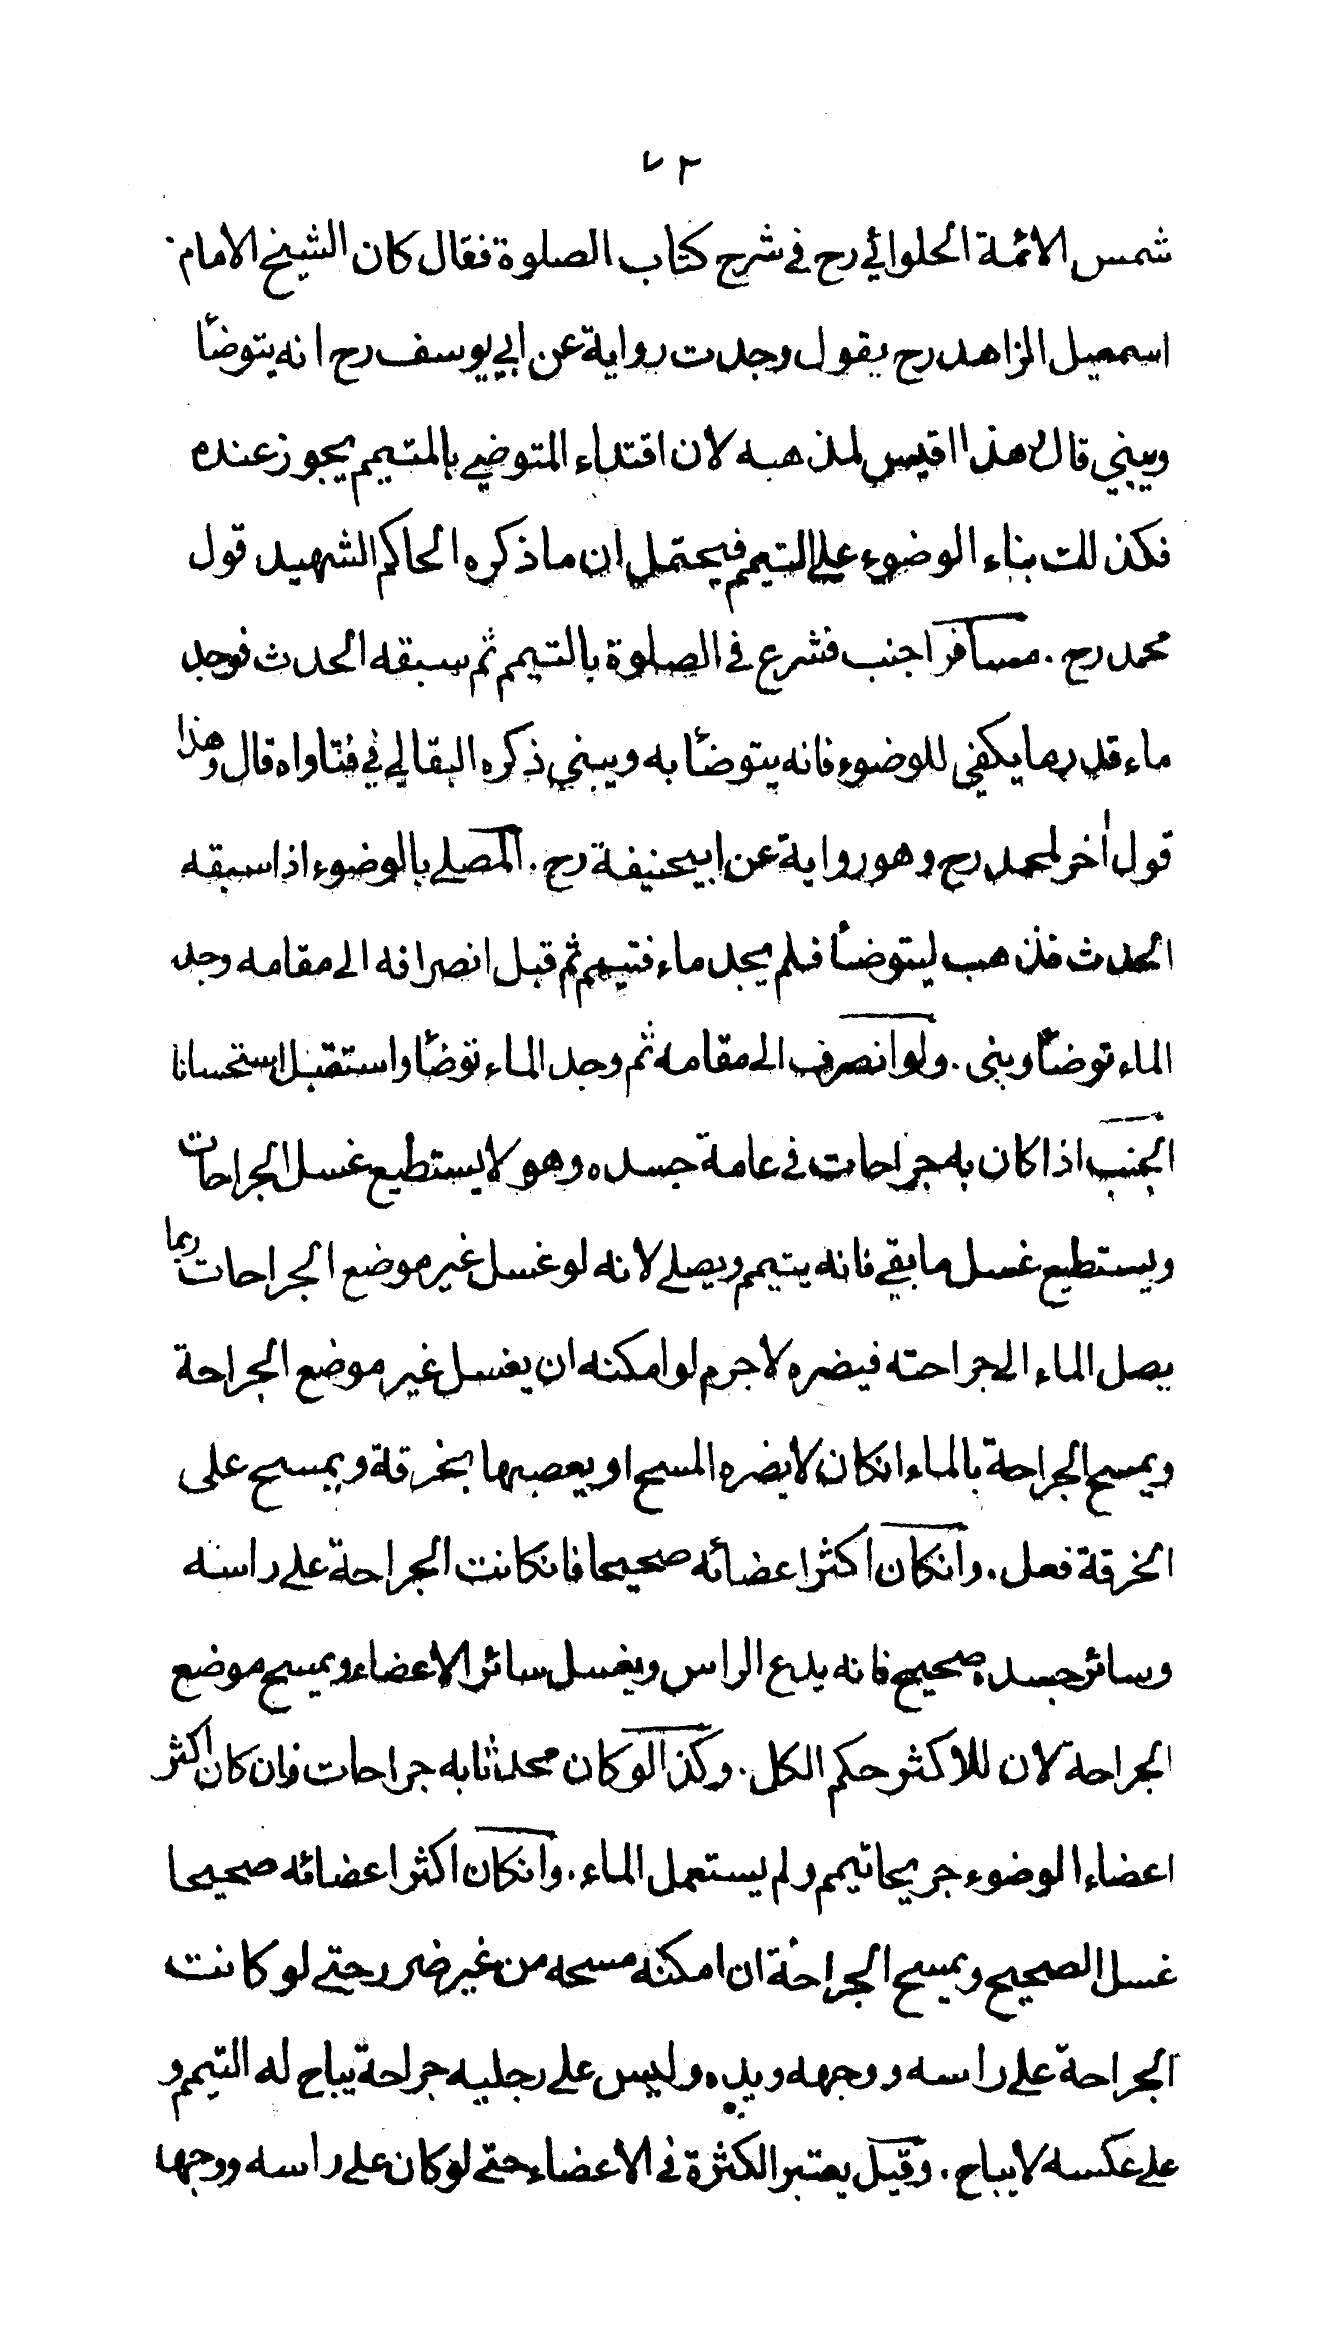 ٧٢
شمس الائمة الحلوائي رح في شرح كتاب الصلوة فقال كان الشيخ الامام
اسمعيل الزاهد رح يقول وجدت رواية عن ابي يوسف رح انه يتوضأ
ويبني قال هذا اقيس لمذهبه لان اقتداء المتوضي بالمتيمم يجوز عنده
فكذلك بناء الوضوء علي التيمم فيحتمل ان ما ذكره الحاكم الشهيد قول
محمد رح . مسافر اجنب فشرع في الصلوة بالتيمم ثم سبقه الحدث فوجد
ماء قدر ما يكفي للوضوء فانه يتوضأ به ويبني ذكره البقالي في فتاواه قال وهذا
قول اخر لمحمد رح وهو رواية عن ابيحنيفة رح . المصلي بالوضوء اذا سبقه
الحدث فذهب ليتوضأ فلم يجد ماء فتيمم ثم قبل انصرافه الى مقامه وجد
الماء توضأ وبنى . ولو انصرف الى مقامه ثم وجد الماء توضأ واستقبل استحسانا
الجنب اذا كان به جراحات في عامة جسده وهو لا يستطيع غسل الجراحات
ويستطيع غسل ما بقي فانه يتيمم ويصلي لانه لو غسل غير موضع الجراحات ربما
يصل الماء الى جراحته فيضره لا جرم لو امكنه ان يغسل غير موضع الجراحة
ويمسح الجراحة بالماء انكان لا يضره المسح او يعصبها بخرقة ويمسح على
الخرقة فعل . وانكان اكثر اعضائه صحيحا فانكانت الجراحة علي راسه
وسائر جسده صحيح فانه يدع الراس ويغسل سائر الاعضاء ويمسح موضع
الجراحة لان للاكثر حكم الكل . وكذا لو كان محدثا به جراحات فان كان اكثر
اعضاء الوضوء جريحا تيمم ولم يستعمل الماء . وانكان اكثر اعضائه صحيحا
غسل الصحيح ويمسح الجراحة ان امكنه مسحه من غير ضرر حتي لو كانت
الجراحة علي راسه ووجهه ويده وليس علي رجليه جراحة يباح له التيمم و
علي عكسه لا يباح . وقيل يعتبر الكثرة في الاعضاء حتي لو كان علي راسه ووجهها